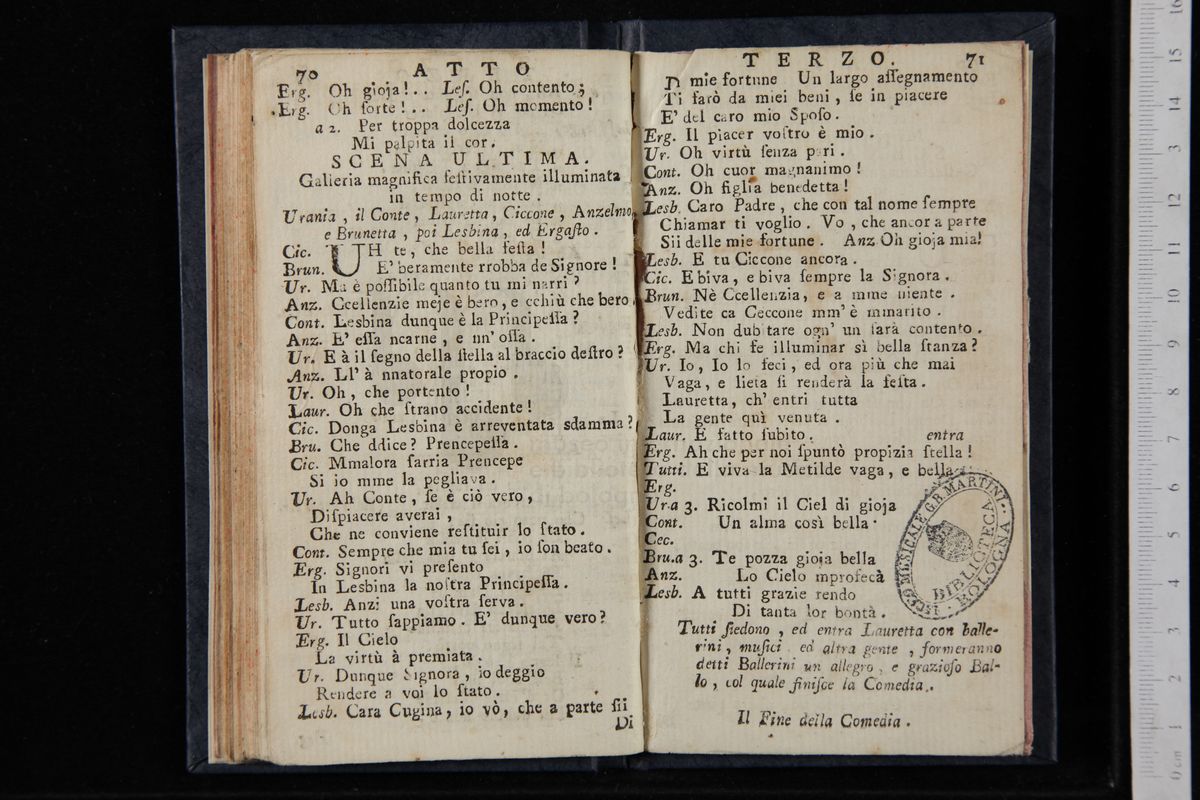 70 ATTO
Erg. Oh gioja!.. Leſ. Oh contento;
Erg. Oh ſorte!.. Leſ. Oh momento!
a 2. Per troppa dolcezza
Mi palpita il cor.
SCENA ULTIMA.
Galleria magnifica feſtivamente illuminata
in tempo di notte.
Urania, il Conte, Lauretta, Ciccone, Anzelmo,
e Brunetta, poi Lesbina, ed Ergaſto.
Cic. UH te, che bella feſta!
Brun. E' beramente rrobba de Signore!
Ur. Ma è poſſibile quanto tu mi narri?
Anz. Ccellenzie meje è bero, e cchiù che bero.
Cont. Lesbina dunque è la Principeſſa?
Anz. E' eſſa ncarne, e nn' oſſa.
Ur. E à il ſegno della ſtella al braccio deſtro?
Anz. Ll' à nnatorale propio.
Ur. Oh, che portento!
Laur. Oh che ſtrano accidente!
Cic. Donga Lesbina è arreventata sdamma?
Bru. Che ddice? Prencepeſſa.
Cic. Mmalora ſarria Prencepe
Si io mme la pegliava.
Ur. Ah Conte, ſe è ciò vero,
Diſpiacere averai,
Che ne conviene reſtituir lo ſtato.
Cont. Sempre che mia tu ſei, io ſon beato.
Erg. Signori vi preſento
In Lesbina la noſtra Principeſſa.
Lesb. Anzi una voſtra ſerva.
Ur. Tutto ſappiamo. E' dunque vero?
Erg. Il Cielo
La virtù à premiata.
Ur. Dunque Signora, io deggio
Rendere a voi lo ſtato.
Lesb. Cara Cugina, io vò, che a parte ſii
Di
TERZO. 71
Di mie fortune Un largo aſſegnamento
Ti farò da miei beni, ſe in piacere
E' del caro mio Spoſo.
Erg. Il piacer voſtro è mio.
Ur. Oh virtù ſenza pari.
Cont. Oh cuor magnanimo!
Anz. Oh figlia benedetta!
Lesb. Caro Padre, che con tal nome ſempre
Chiamar ti voglio. Vo, che ancor a parte
Sii delle mie fortune. Anz Oh gioja mia!
Lesb. E tu Ciccone ancora.
Cic. Ebiva, e biva ſempre la Signora.
Brun. Nè Ccellenzia, e a mme niente.
Vedite ca Ceccone mm' è mmarito.
Lesb. Non dubitare ogn' un ſarà contento.
Erg. Ma chi fe illuminar sì bella ſtanza?
Ur. Io, Io lo feci, ed ora più che mai
Vaga, e lieta ſi renderà la feſta.
Lauretta, ch' entri tutta
La gente quì venuta.
Laur. E fatto ſubito. entra
Erg. Ah che per noi ſpuntò propizia ſtella!
Tutti. E viva la Metilde vaga, e bella
Erg.
Ur.a 3. Ricolmi il Ciel di gioja
Cont. Un alma così bella.
Cec.
Bru.a 3. Te pozza gioja bella
Anz. Lo Cielo mproſecà
Lesb. A tutti grazie rendo
Di tanta lor bontà.
Tutti ſiedono, ed entra Lauretta con balle-
rini, muſici ed altra gente, formeranno
detti Ballerini un allegro, e grazioſo Bal-
lo, col quale finiſce la Comedia.
Il Fine della Comedia.
LICEO MUSICALE G.B. MARTINI
BIBLIOTECA
BOLOGNA
0 cm 1 2 3 4 5 6 7 8 9 10 11 12 13 14 15 16